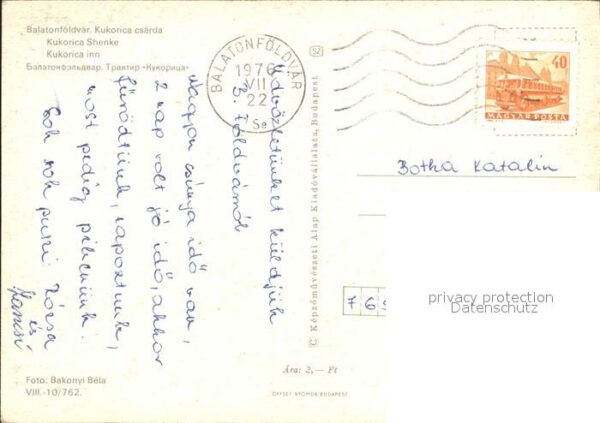 Balatonföldvár. Kukorica csárda
Kukorica Shenke
Kukorica inn
Балатонфэльдвар. Трактир «Кукорица»
BALATONFÖLDVÁR
1976
VII
22
Se
SZ
40
MAGYAR POSTA
Üdvözletünket küldjük
B. Földvárról
Nagyon csúnya idő van,
2 nap volt jó idő, akkor
fürödtünk, napoztunk,
most pedig pihenünk.
Sok sok puszi Rózsa
és
© Képzőművészeti Alap Kiadóvállalata, Budapest
Botka Katalin
privacy protection
Datenschutz
7 6
Ára: 2,— Ft
Foto: Bakonyi Béla
VIII.-10/762.
OFFSET-NYOMDA/BUDAPEST